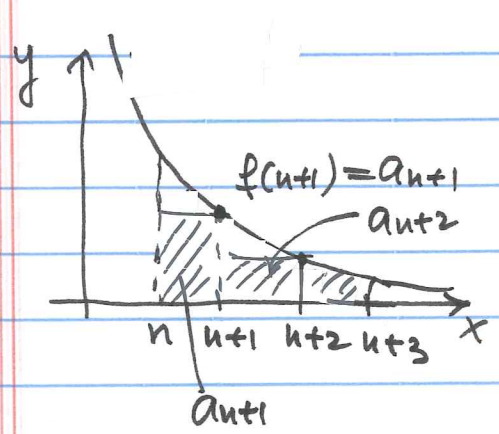 y
f(n+1) = a_{n+1}
a_{n+2}
n n+1 n+2 n+3 x
a_{n+1}